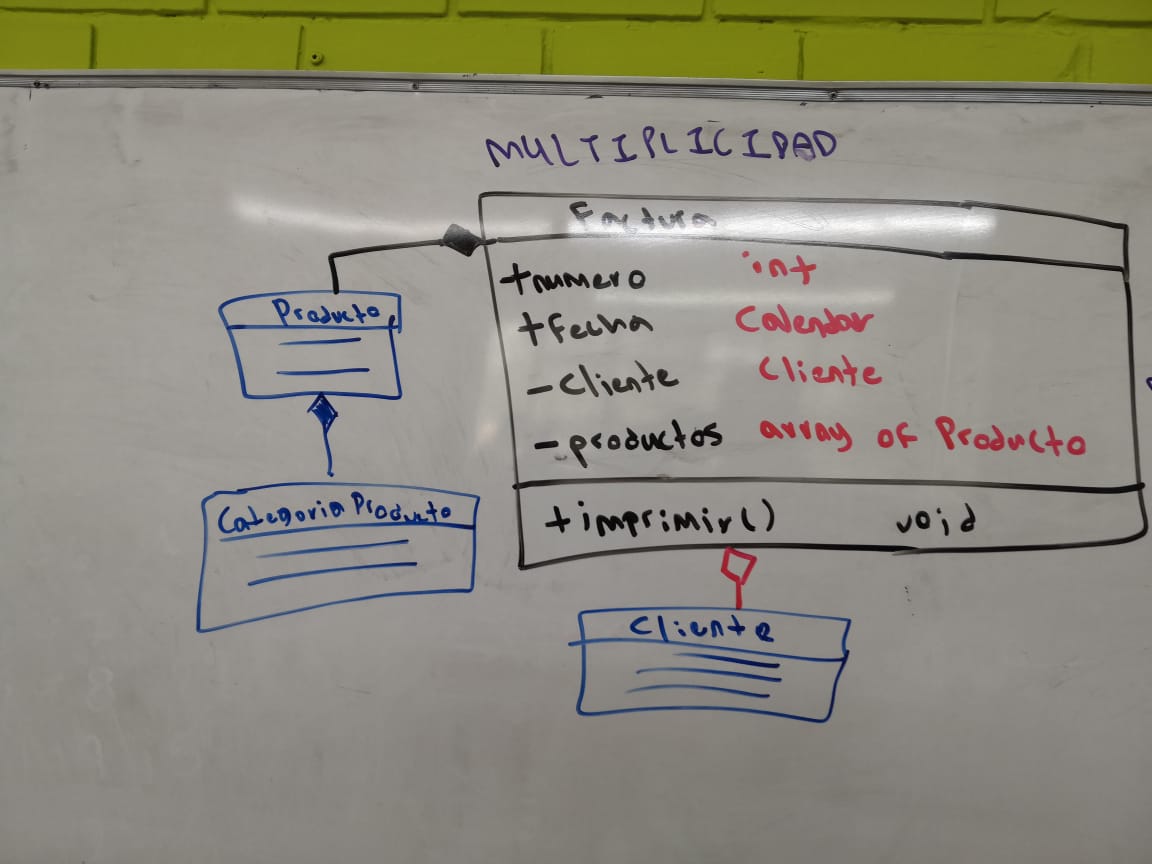 MULTIPLICIDAD
Factura
+numero int
+fecha Calendar
-cliente Cliente
-productos array of Producto
+imprimir() void
Producto
CategoriaProducto
Cliente